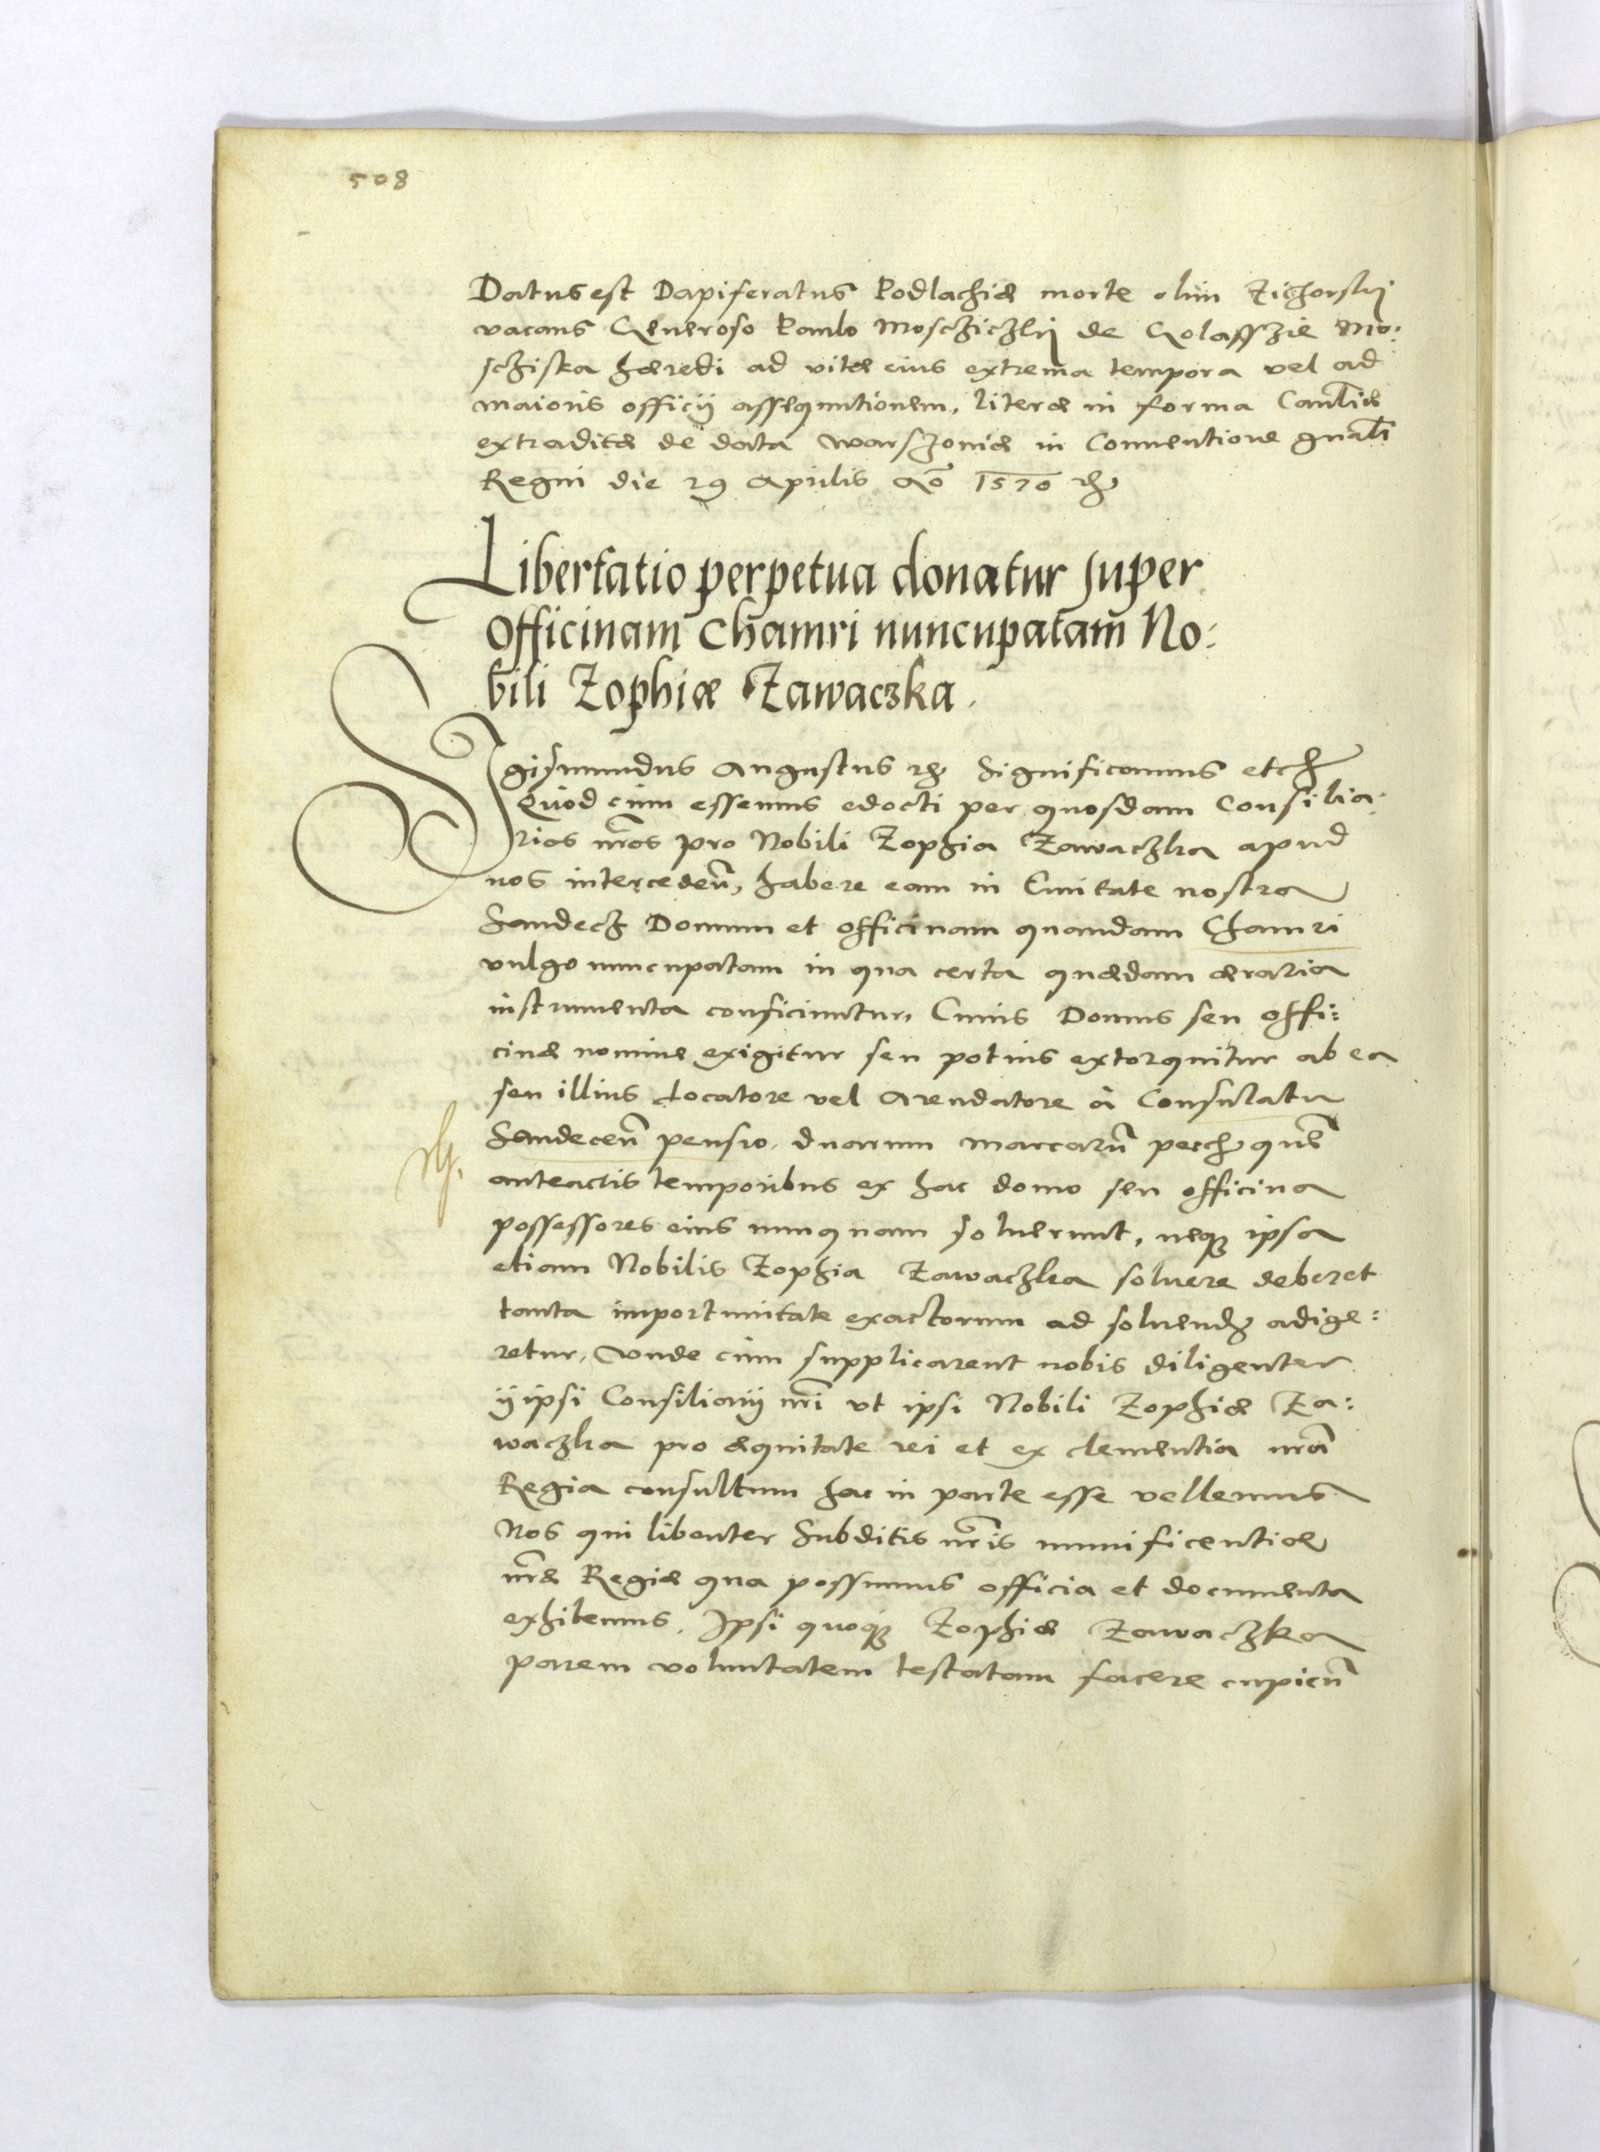 508
Datus est Dapiferatus Podlachiæ morte olim Zichorskÿ
vacans Generoso Paulo Mosczÿczkÿ de Golassze Mo:
scziska hæredi ad vitæ eius extrema tempora vel ad
maioris officij assequutionem, literæ in forma Canc̃læ
extraditæ de data Warszoniæ in Conuentione gñali
Regni die 29 Aprilis Aõ 1570 etc
Libertatio perpetua donatur super
Officinam Chamri nuncupatam No:
bili Zophiæ Zawaczka.
Sigismundus Augustus etc Significamus etc
Quod cùm essemus edocti per quosdam Consilia:
rios nr̃os pro Nobili Zophia Zawaczka apud
nos interceden̄, habere eam in Ciuitate nostra
Sandecz Domum et officinam quandam Chamri
vulgo nuncupatam in qua certa quædam æraria
instrumenta conficiuntur, Cuius Domus seu offi:
cinæ nomine exigitur seu potius extorquitur ab ea
seu illius locatore vel Arendatore à Consulatu
Sandecen̄ pensio duarum marcarum̄ pecc quã
anteactis temporibus ex hac domo seu officina
possessores eius nunquam soluerunt, neq ipsa
etiam Nobilis Zophia Zawaczka soluere deberet
tanta importunitate exactorum ad soluend adige:
retur, Vnde cùm supplicarent nobis diligenter
ij ipsi Consiliarij nr̃i vt ipsi Nobili Zophiæ Za:
waczka pro æquitate rei et ex clementia nr̃a
Regia consultum hac in parte esse vellemus
Nos qui libenter Subditis nr̃is munificentiæ
nr̃æ Regiæ qua possumus officia et documenta
exhibemus, Ipsi quoq Zophiæ Zawaczka
parem voluntatem testatam facere cupien̄